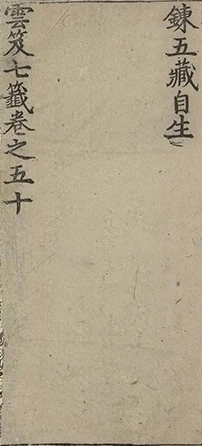 鍊五藏自生
雲笈七籤卷之五十